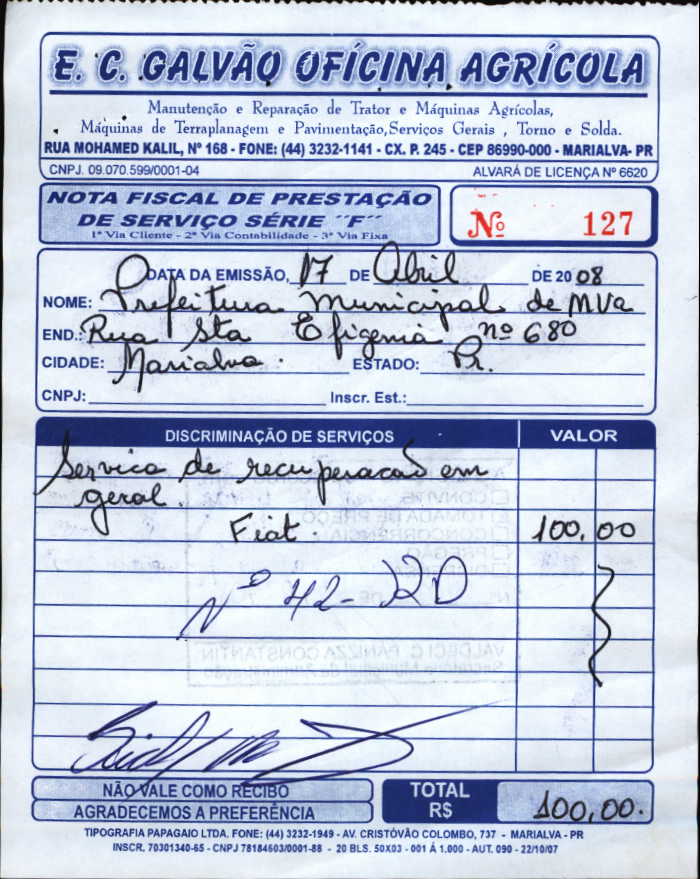 E. C. GALVÃO OFÍCINA AGRÍCOLA
Manutenção e Reparação de Trator e Máquinas Agrícolas,
Máquinas de Terraplanagem e Pavimentação,Serviços Gerais , Torno e Solda.
RUA MOHAMED KALIL, Nº 168 - FONE: (44) 3232-1141 - CX. P. 245 - CEP 86990-000 - MARIALVA- PR
CNPJ. 09.070.599/0001-04 ALVARÁ DE LICENÇA Nº 6620
NOTA FISCAL DE PRESTAÇÃO
DE SERVIÇO SÉRIE ´´F´´
1ª Via Cliente - 2ª Via Contabilidade - 3ª Via Fixa
Nº 127
DATA DA EMISSÃO, 17 DE Abril DE 2008
NOME: Prefeitura Municipal de MVa
END.: Rua Sta Efigenia nº 680
CIDADE: Marialva. ESTADO: Pr.
CNPJ: Inscr. Est.:
DISCRIMINAÇÃO DE SERVIÇOS VALOR
Servico de recuperacao em
geral.
Fiat. 100,00
Nº 42-
NÃO VALE COMO RECIBO
AGRADECEMOS A PREFERÊNCIA
TOTAL
R$ 100,00.
TIPOGRAFIA PAPAGAIO LTDA. FONE: (44) 3232-1949 - AV. CRISTÓVÃO COLOMBO, 737 - MARIALVA - PR
INSCR. 70301340-65 - CNPJ 78184603/0001-88 - 20 BLS. 50X03 - 001 Á 1.000 - AUT. 090 - 22/10/07